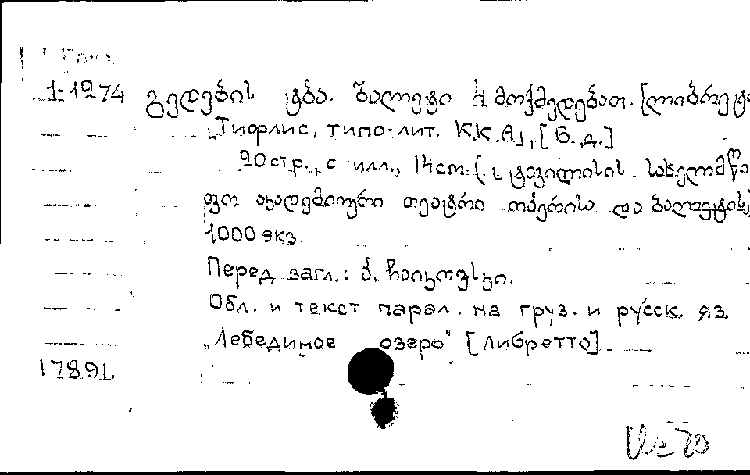 1-1274 გედების ტბა. ბალეტი 4 მოქმედებათ. [ლიბრეტ
Тифлис, типо-лит. К.К.А., [б.д.]
20 стр., с илл., 14 см. [ტფილისის სახელმწი
ფო აკადემიური თეატრი ოპერისა და ბალეტის]
1000 экз.
Перед загл.: პ. ჩაიკოვსკი.
Обл. и текст парал. на груз. и русск. яз.
„Лебединое озеро" [либретто]
17891